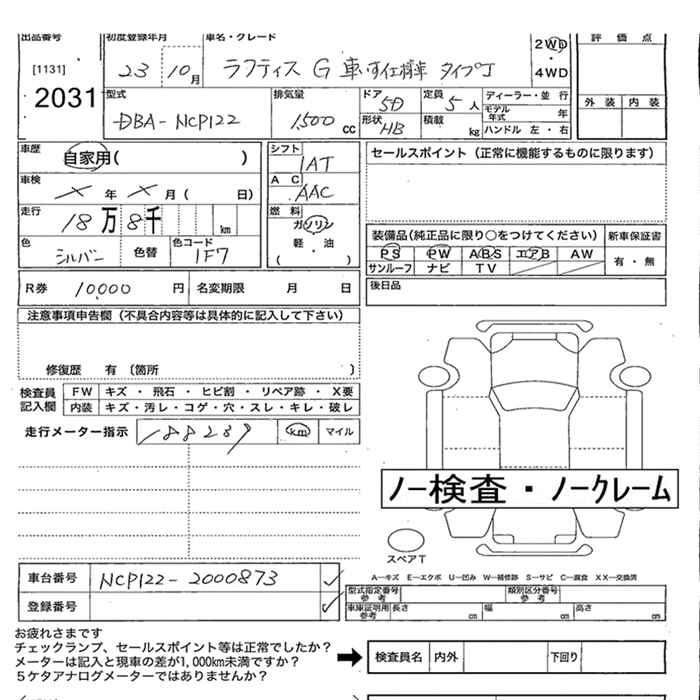 出品番号 初度登録年月 車名・グレード 評価点
[1131] 23 10月 ラクティス G 車いす仕様車 タイプI 2WD・4WD
2031
型式 排気量 ドア 5D 定員 5人 ディーラー・並行 外装 内装
DBA-NCP122 1,500cc 形状 HB 積載 kg モデル年式 年
ハンドル 左・右
車歴 自家用( ) シフト IAT セールスポイント(正常に機能するものに限ります)
車検 × 年 × 月( 日) AC AAC
走行 18万8千 km 燃料 ガソリン 軽・油 ( )
色 シルバー 色替 色コード 1F7
装備品(純正品に限り○をつけてください) 新車保証書
PS PW ABS エアB AW 有・無
サンルーフ ナビ TV
R券 10,000円 名変期限 月 日 後日品
注意事項申告欄(不具合内容等は具体的に記入して下さい)
修復歴 有〔箇所 〕
検査員記入欄 FW キズ・飛石・ヒビ割・リペア跡・X要
内装 キズ・汚レ・コゲ・穴・スレ・キレ・破レ
走行メーター指示 188237 km マイル
ノー検査・ノークレーム
スペアT
車台番号 NCP122-2000873 ✓
登録番号 ✓
A―キズ E―エクボ U―凹み W―補修跡 S―サビ C―腐食 XX―交換済
型式指定番号 参考 類別区分番号 参考
車庫証明用 参考 長さ cm 幅 cm 高さ cm
お疲れさまです
チェックランプ、セールスポイント等は正常でしたか?
メーターは記入と現車の差が1,000km未満ですか?
5ケタアナログメーターではありませんか?
検査員名 内外 下回り